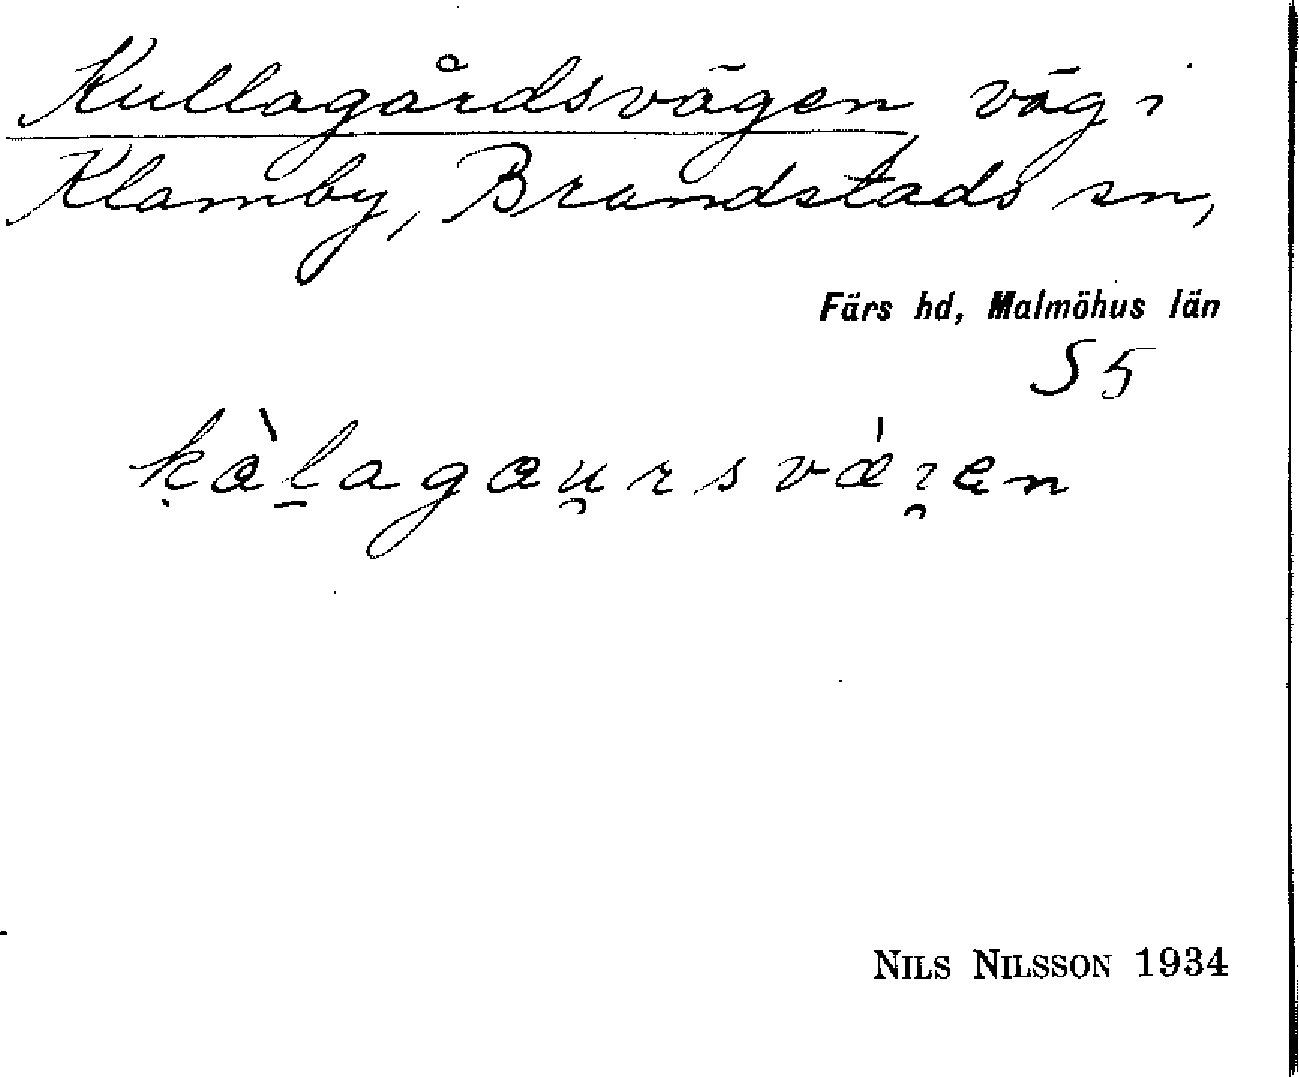 Kullagårdsvägen väg i
Klamby, Brandstads sn,
Färs hd, Malmöhus län
S 5
NILS NILSSON 1934